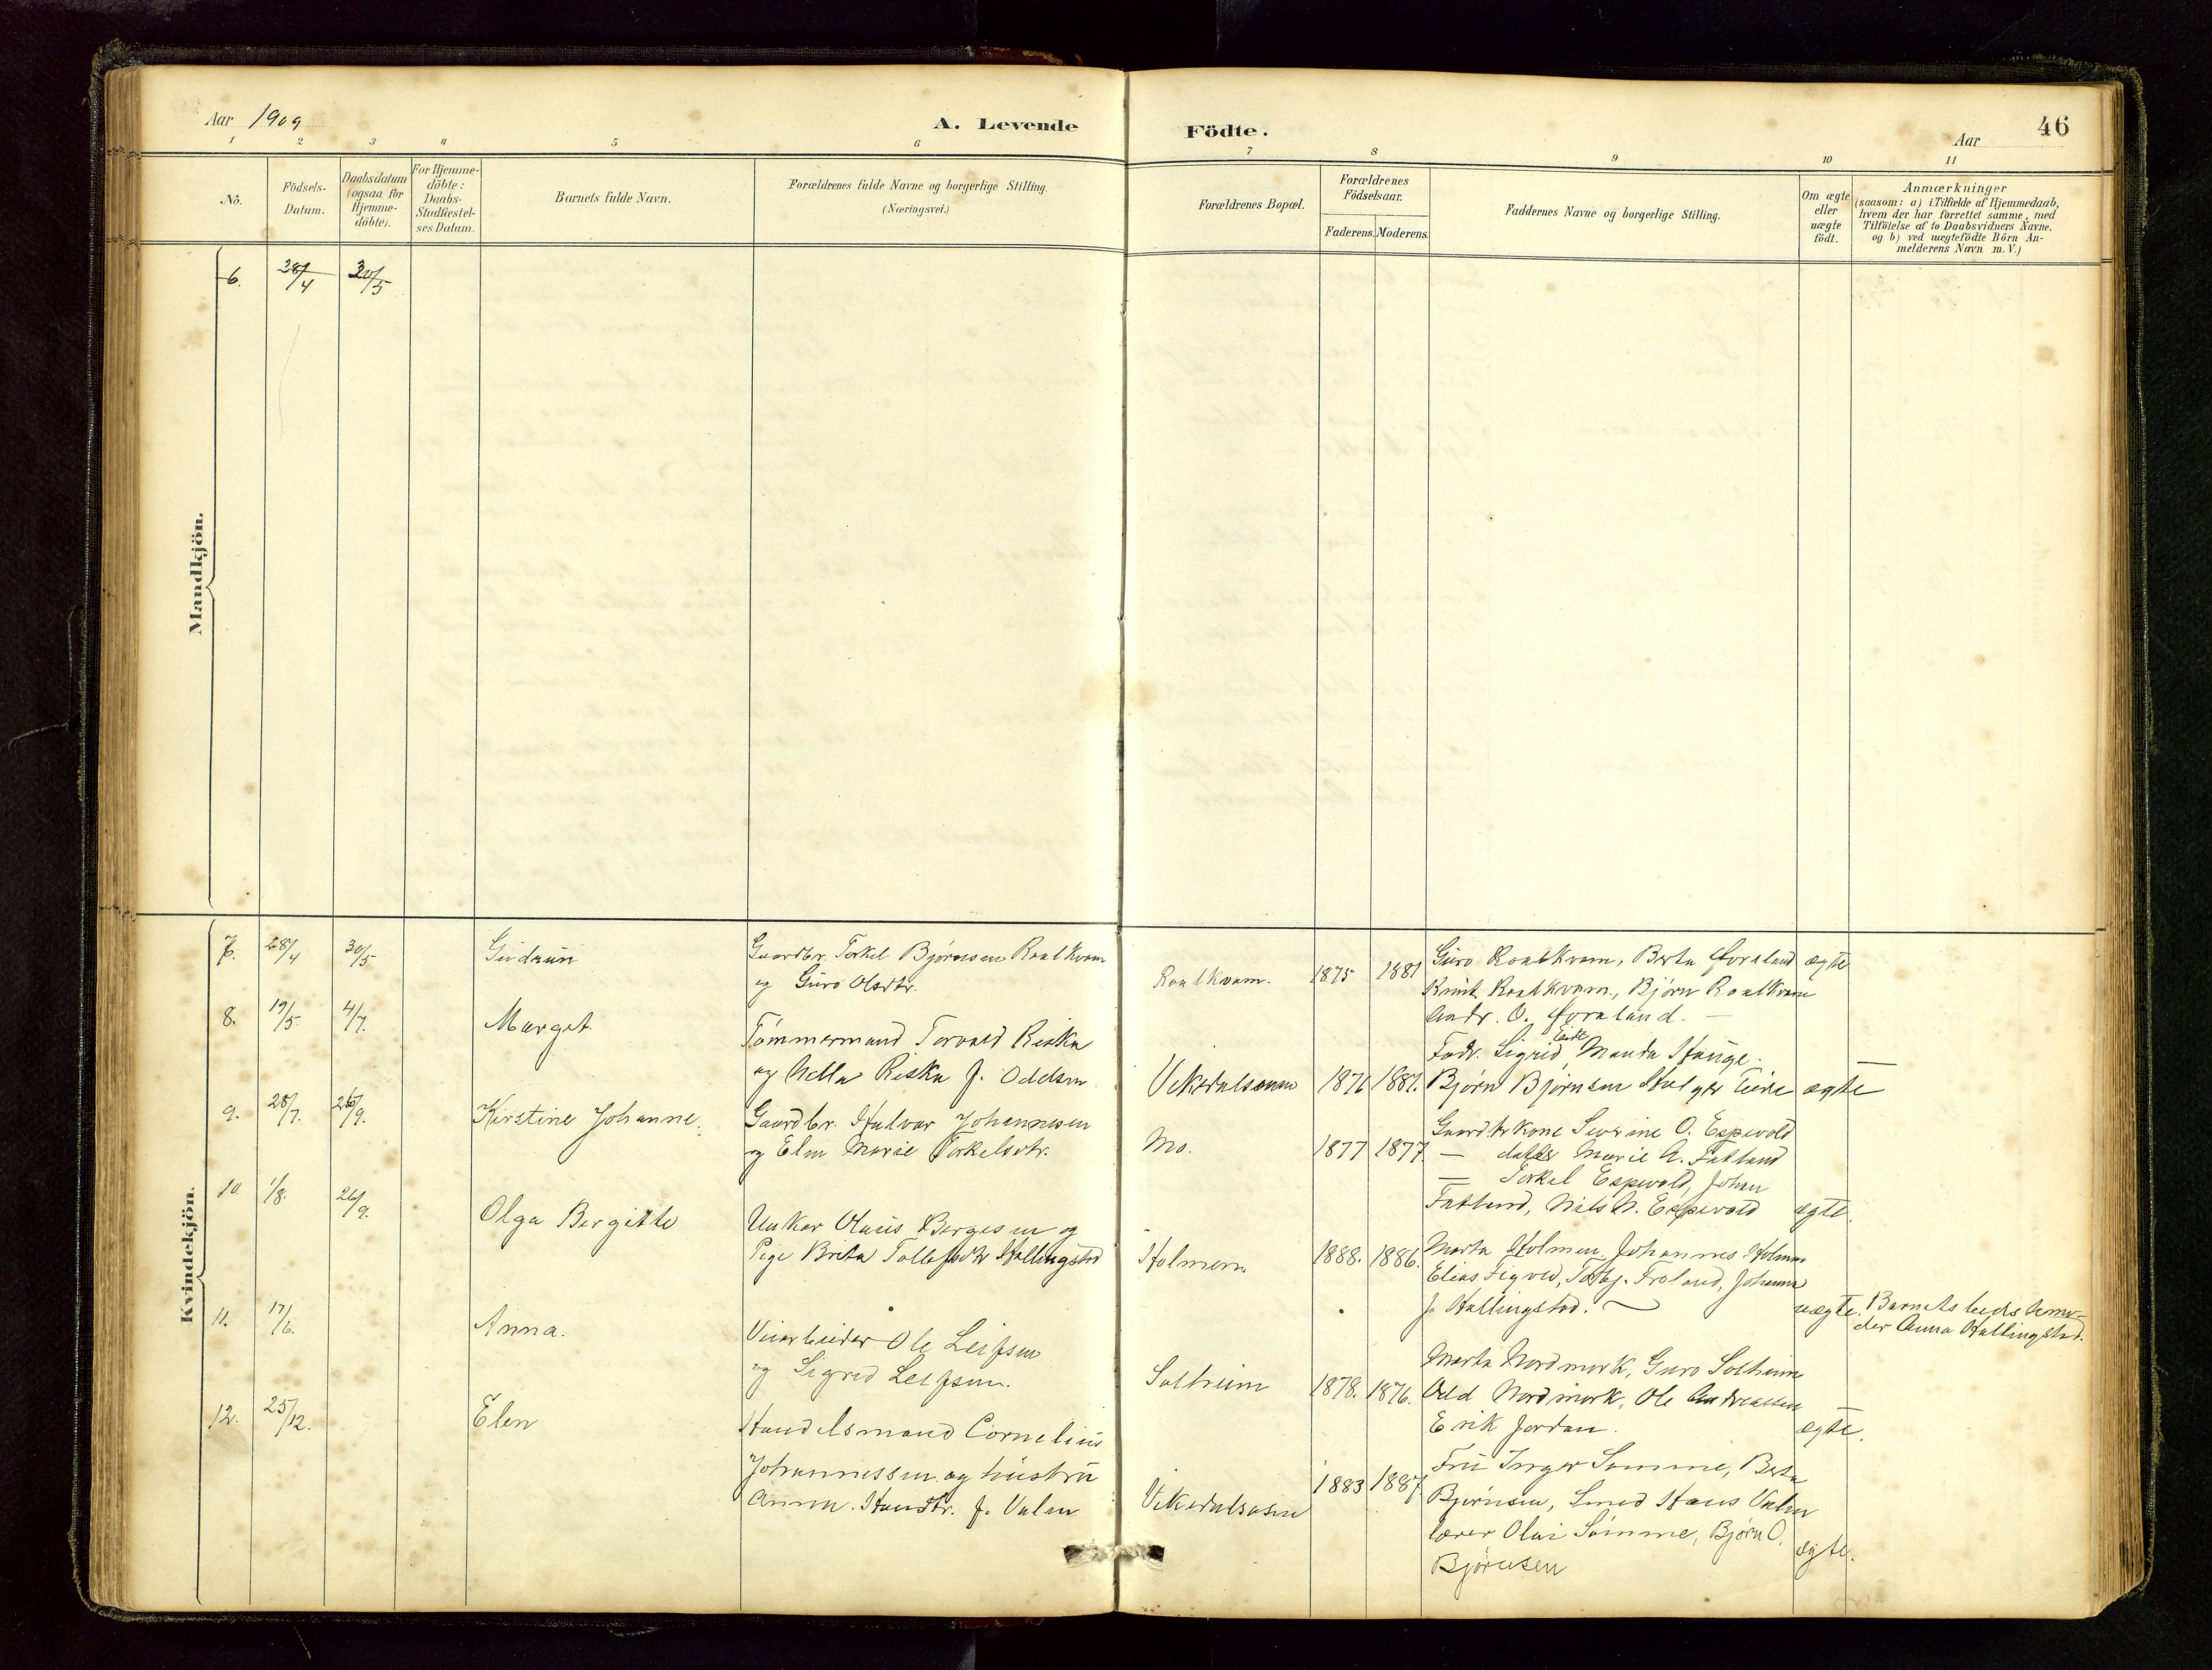 Aar 1909
A. Levende
Födte.
Aar
46
1 2 3 4 5 6 7 8 9 10 11
No.
Födsels-
Datum.
Daabsdatum
(ogsaa for
Hjemme-
döbte).
For Hjemme-
döbte:
Daabs-
Stadfestel-
ses Datum.
Barnets fulde Navn.
Forældrenes fulde Navne og borgerlige Stilling.
(Næringsvei.)
Forældrenes Bopæl.
Forældrenes
Födselsaar.
Faderens. Moderens.
Faddernes Navne og borgerlige Stilling.
Om ægte
eller
uægte
födt.
Anmærkninger
(saasom: a) i Tilfælde af Hjemmedaab,
hvem der har forrettet samme, med
Tilföielse af to Daabsvidners Navne,
og b) ved uægtefödte Börn An-
melderens Navn m. V.)
Mandkjön.
6. 28/4 30/5
Kvindekjön.
7. 28/4 30/5 Gudrun
Gaardbr. Torkel Bjørnsen Roalkvam
og Guro Olsdtr.
Roalkvam. 1875 1881
Guro Roalkvam, Berta Førland ægte
Knut Roalkvam, Bjørn Roalkvam
Andr. O. Førland. —
8. 19/5 4/7. Margit
Tømmermand Torvald Riska
og Nella Riska f. Oddsen
Vikedalsøren 1876 1887.
Fadr. Sigrid Eide, Manda Hauge.
Bjørn Bjørnsen Helger Eide ægte
9. 28/7. 26/9. Kirstine Johanne.
Gaardbr. Halvar Johannesen
og Elen Marie Torkelsdtr.
Mo. 1877 1877
Gaardbrkone Severine O. Espevold
— datter Marie A. Fatland
— Torkel Espevold, Johan
Fatland, Nils N. Espevold ægte.
10. 1/8. 26/9. Olga Bergitte
Unkar Olaus Børgesen og
Pige Brita Tollefsdtr Hallingstad
Holmen 1888. 1886.
Marta Holmen, Johannes Holmen
Elias Tigved, Torbj. Frøland, Johanna
J. Hallingstad. uægte. Barnets bedstemo-
der Anna Hallingstad.
11. 17/6. Anna.
Veiarbeider Ole Leifsen
og Sigrid Leifsen.
Solheim 1878. 1876.
Marta Nordmork, Guro Solheim
Odd Nordmork, Ole Andreassen
Erik Jordan. ægte.
12. 25/12. Elen
Handelsmand Cornelius
Johannessen og hustru
Anna Hansdtr. f. Valen
Vikedalsosen 1883 1887
Fru Inger Sømme, Berta
Bjørnsen, Smed Hans Valen
lærer Olai Sømme, Bjørn O.
Bjørnsen ægte.